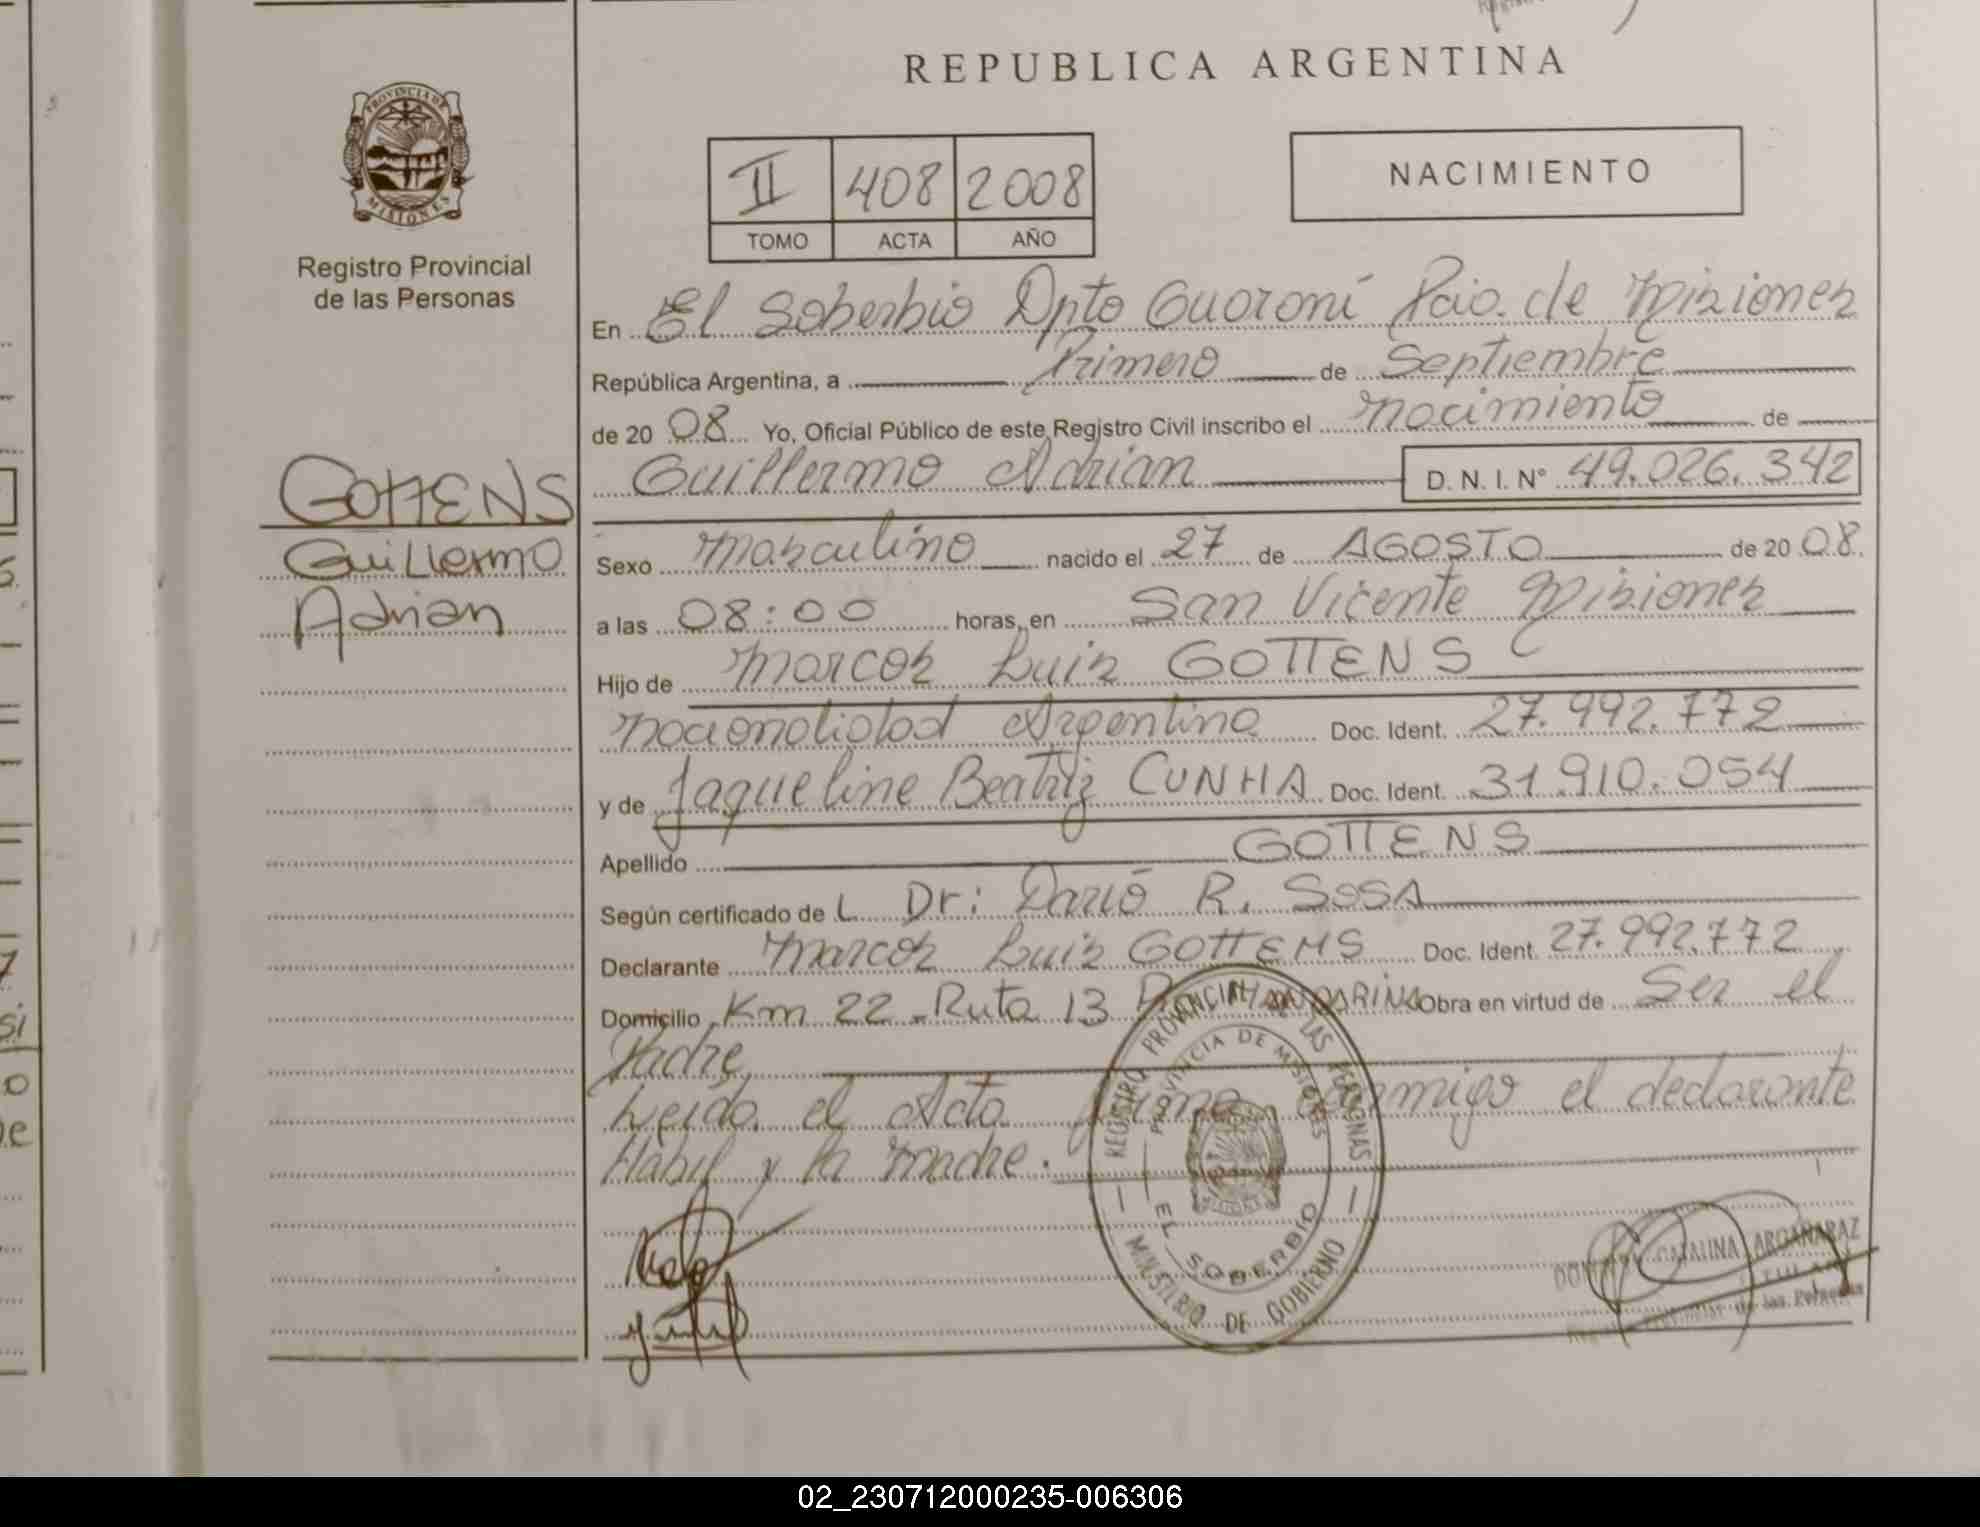 REPUBLICA ARGENTINA
PROVINCIA DE
MISIONES
Registro Provincial
de las Personas
II 408 2008
TOMO ACTA AÑO
NACIMIENTO
En El Soberbio Dpto Guaraní Pcio. de Misiones
República Argentina, a Primero de Septiembre
de 20 08 Yo, Oficial Público de este Registro Civil inscribo el nacimiento de
Guillermo Adrian D. N. I. N° 49.026.342
GOTTENS
Guillermo
Adrian
Sexo masculino nacido el 27 de AGOSTO de 20 08.
a las 08:00 horas, en San Vicente Misiones
Hijo de Marcos Luis GOTTENS
nacionalidad Argentina Doc. Ident. 27.992.772
y de Jaqueline Beatriz CUNHA Doc. Ident. 31.910.054
Apellido GOTTENS
Según certificado de L Dr: Darió R. SOSA
Declarante Marcos Luis GOTTENS Doc. Ident. 27.992.772
Domicilio Km 22 - Ruta 13 Obra en virtud de Ser el
Padre
Leida el Acta firma conmigo el declarante
Habil y la madre.
REGISTRO PROVINCIAL DE LAS PERSONAS
PROVINCIA DE MISIONES
EL SOBERBIO
MINISTERIO DE GOBIERNO
CATALINA ARGAÑARAZ
de las Personas
02_230712000235-006306